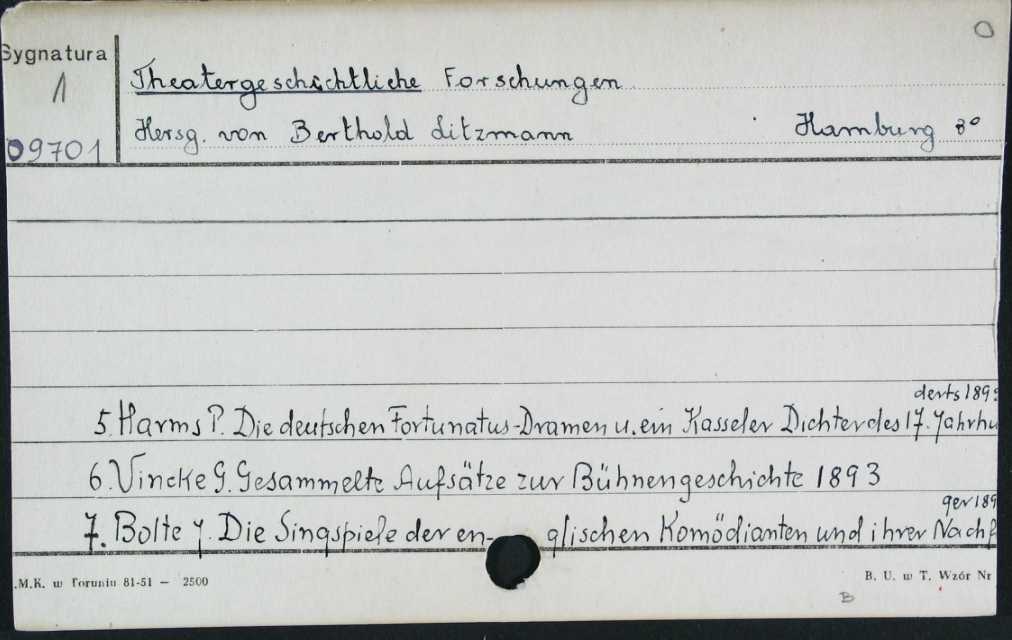 O
Sygnatura
1
09701
Theatergeschichtliche Forschungen
Hersg. von Berthold Litzmann Hamburg 8°
derts 189
5. Harms P. Die deutschen Fortunatus-Dramen u. ein Kasseler Dichter des 17. Jahrhu
6. Vincke G. Gesammelte Aufsätze zur Bühnengeschichte 1893
ger 189
7. Bolte J. Die Singspiele der en- glischen Komödianten und ihrer Nachf
.M.K. w Toruniu 81-51 — 2500
B. U. w T. Wzór Nr
B